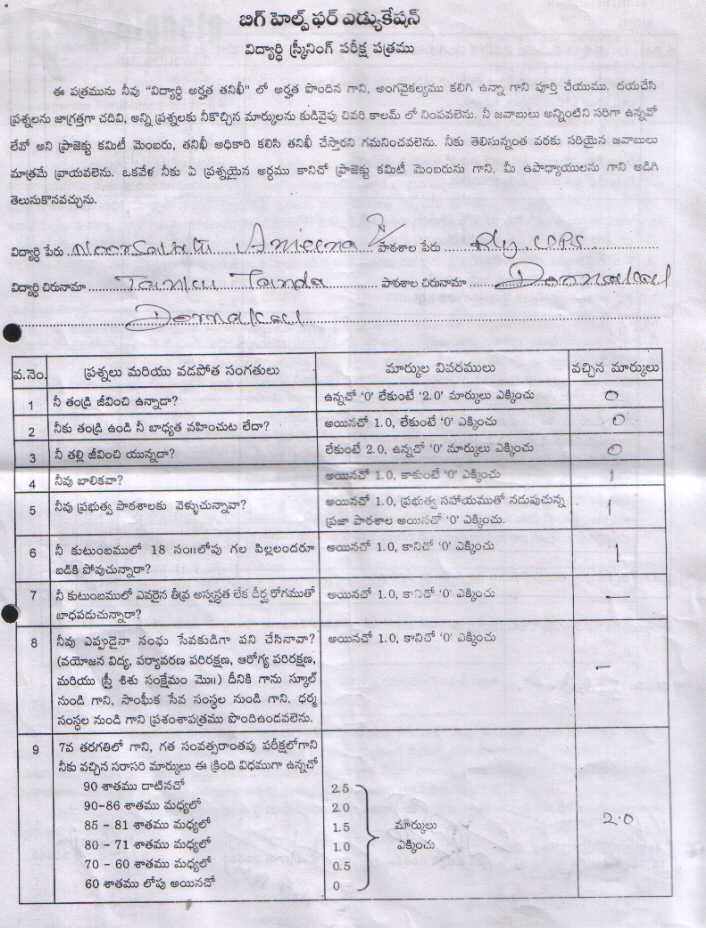 బిగ్ హెల్ప్ ఫర్ ఎడ్యుకేషన్
విద్యార్ధి స్క్రీనింగ్ పరీక్ష పత్రము
ఈ పత్రమును నీవు "విద్యార్ధి అర్హత తనిఖీ" లో అర్హత పొందిన గాని, అంగవైకల్యము కలిగి ఉన్నా గాని పూర్తి చేయుము. దయచేసి
ప్రశ్నలను జాగ్రత్తగా చదివి, అన్ని ప్రశ్నలకు నీకొచ్చిన మార్కులను కుడివైపు చివరి కాలమ్ లో నింపవలెను. నీ జవాబులు అన్నింటిని సరిగా ఉన్నవో
లేవో అని ప్రాజెక్టు కమిటీ మెంబరు, తనిఖీ అధికారి కలిసి తనిఖీ చేస్తారని గమనించవలెను. నీకు తెలిసున్నంత వరకు సరియైన జవాబులు
మాత్రమే వ్రాయవలెను. ఒకవేళ నీకు ఏ ప్రశ్నయైన అర్ధము కానిచో ప్రాజెక్టు కమిటీ మెంబరును గాని, మీ ఉపాధ్యాయులను గాని అడిగి
తెలుసుకొనవచ్చును.
విద్యార్ధి పేరు Ameena పాఠశాల పేరు Rly.
విద్యార్ధి చిరునామా Tanda పాఠశాల చిరునామా Dornakal
Dornakal
వ.నెం. ప్రశ్నలు మరియు వడపోత సంగతులు మార్కుల వివరములు వచ్చిన మార్కులు
1 నీ తండ్రి జీవించి ఉన్నాడా? ఉన్నచో '0' లేకుంటే '2.0' మార్కులు ఎక్కించు 0
2 నీకు తండ్రి ఉండి నీ బాధ్యత వహించుట లేదా? అయినచో 1.0, లేకుంటే '0' ఎక్కించు 0
3 నీ తల్లి జీవించి యున్నదా? లేకుంటే 2.0, ఉన్నచో '0' మార్కులు ఎక్కించు 0
4 నీవు బాలికవా? అయినచో 1.0, కాకుంటే '0' ఎక్కించు 1
5 నీవు ప్రభుత్వ పాఠశాలకు వెళ్ళుచున్నావా? అయినచో 1.0, ప్రభుత్వ సహాయముతో నడుపుచున్న 1
ప్రజా పాఠశాల అయినచో '0' ఎక్కించు.
6 నీ కుటుంబములో 18 సం॥లోపు గల పిల్లలందరూ అయినచో 1.0, కానిచో '0' ఎక్కించు 1
బడికి పోవుచున్నారా?
7 నీ కుటుంబములో ఎవరైన తీవ్ర అస్వస్థత లేక దీర్ఘ రోగముతో అయినచో 1.0, కానిచో '0' ఎక్కించు —
బాధపడుచున్నారా?
8 నీవు ఎప్పుడైనా సంఘ సేవకుడిగా పని చేసినావా? అయినచో 1.0, కానిచో '0' ఎక్కించు
(వయోజన విద్య, పర్యావరణ పరిరక్షణ, ఆరోగ్య పరిరక్షణ,
మరియు స్త్రీ శిశు సంక్షేమం మొ॥) దీనికి గాను స్కూల్ —
నుండి గాని, సాంఘిక సేవ సంస్థల నుండి గాని, ధర్మ
సంస్థల నుండి గాని ప్రశంశాపత్రము పొందిఉండవలెను.
9 7వ తరగతిలో గాని, గత సంవత్సరాంతపు పరీక్షలోగాని
నీకు వచ్చిన సరాసరి మార్కులు ఈ క్రింది విధముగా ఉన్నచో
90 శాతము దాటినచో 2.5
90-86 శాతము మధ్యలో 2.0
85 - 81 శాతము మధ్యలో 1.5 మార్కులు 2.0
80 - 71 శాతము మధ్యలో 1.0 ఎక్కించు
70 - 60 శాతము మధ్యలో 0.5
60 శాతము లోపు అయినచో 0